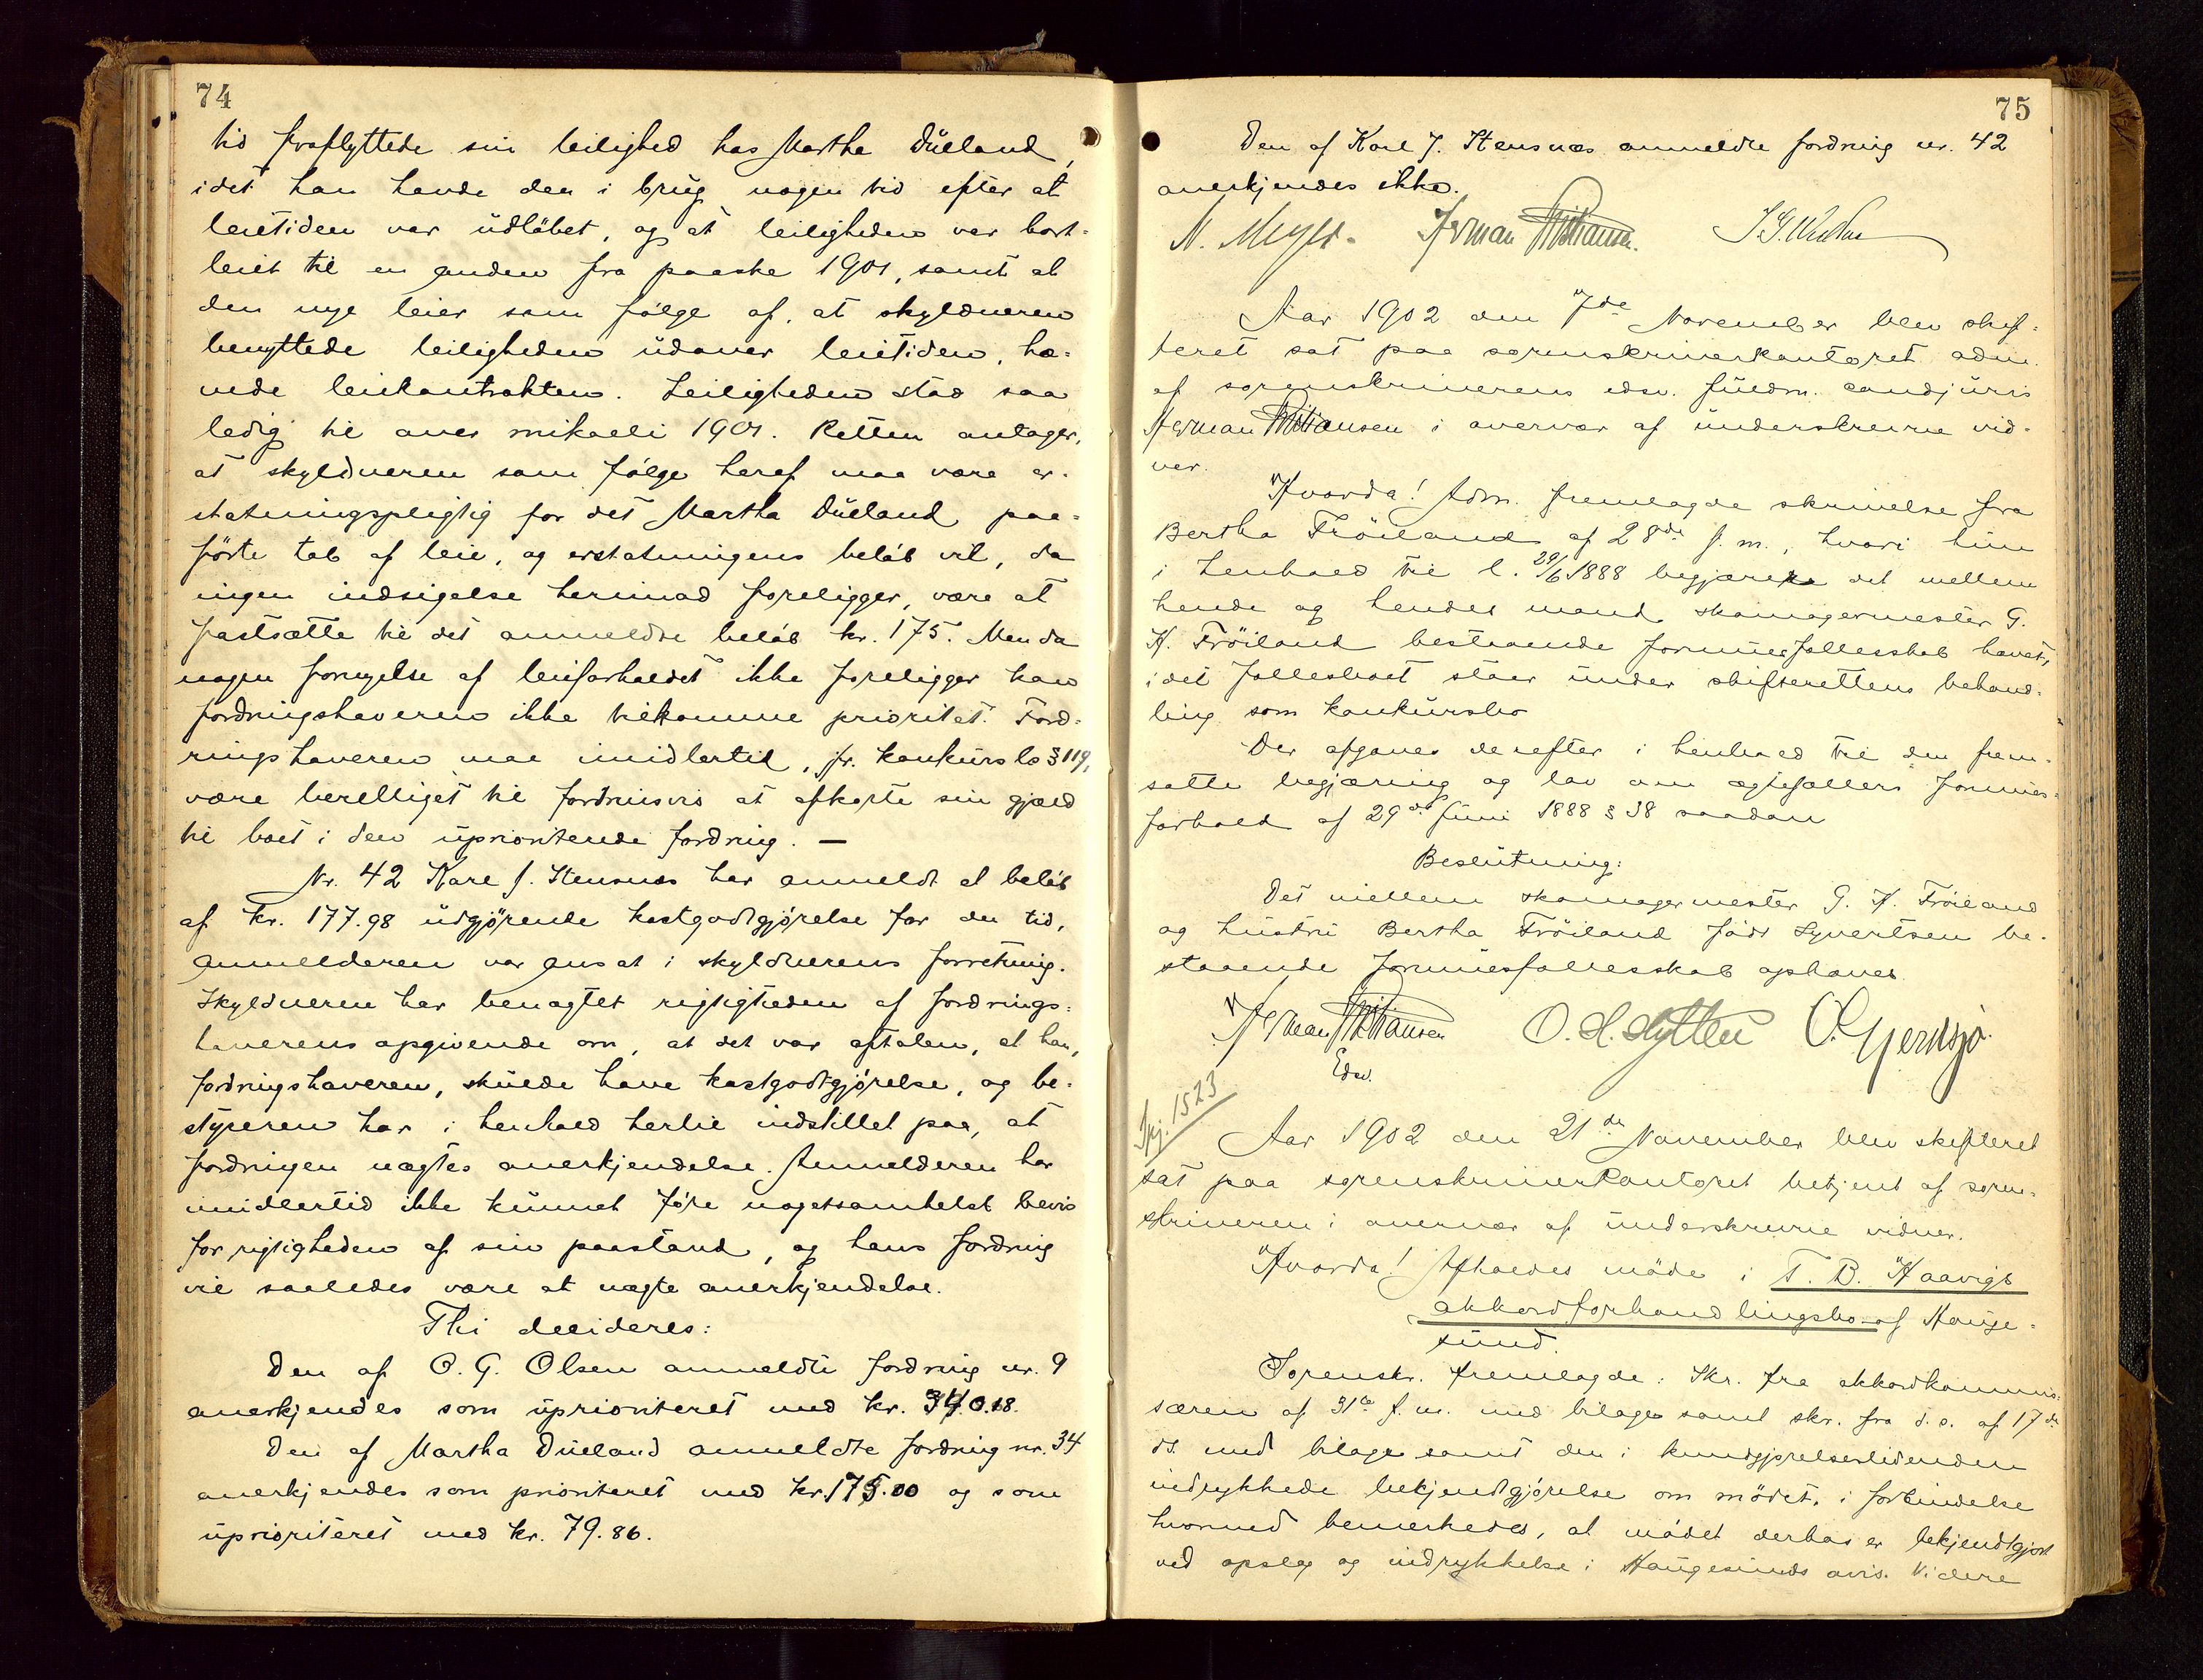 74
tid fraflyttede sin leilighed hos Martha Dueland,
idet han havde den i brug nogen tid efter at
leietiden var udløbet, og at leiligheden var bort-
leiet til en anden fra paaske 1901, samt at
den nye leier som følge af, at skyldneren
benyttede leiligheden udover leietiden, hæ-
vede leiekontrakten. Leiligheden stod saa
ledig til over mikaeli 1901. Retten antager,
at skyldneren som følge heraf maa være er-
statningspligtig for det Martha Dueland paa-
førte tab af leie, og erstatningens beløb vil, da
ingen indsigelse herimod foreligger, være at
fastsætte til det anmeldte beløb kr. 175. Men da
nogen fornyelse af leieforholdet ikke foreligger kan
fordringshaveren ikke tilkomme prioritet. Ford-
ringshaveren maa imidlertid, jfr. konkurslo § 119,
være berettiget til fordrinsvis at afkorte sin gjæld
til boet i den uprioriterede fordring. —
Nr. 42 Karl J. Stensnæs har anmeldt et beløb
af kr. 177.98 udgjørende kostgodtgjørelse for den tid,
anmelderen var ansat i skyldnerens forretning.
Skyldneren har benægtet rigtigheden af fordrings-
haverens opgivende om, at det var aftalen, at han,
fordringshaveren, skulde have kostgodtgjørelse, og be-
styreren har i henhold hertil indstillet paa, at
fordringen nægtes anerkjendelse. Anmelderen har
imidlertid ikke kunnet føre nogetsomhelst bevis
for rigtigheden af sin paastand, og hans fordring
vil saaledes være at nægte anerkjendelse.
Thi decideres:
Den af O. G. Olsen anmeldte fordring nr. 9
anerkjendes som uprioriteret med kr. 340.18.
Den af Martha Dueland anmeldte fordring nr. 34
anerkjendes som prioriteret med kr. 175.00 og som
uprioriteret med kr. 79.86.
75
Den af Karl J. Stensnæs anmeldte fordring nr. 42
anerkjendes ikke.
N. Meyer. Herman Christiansen.
Aar 1902 den 7de November blev skif-
teret sat paa sorenskriverkontoret adm.
af sorenskriverens edsv. fuldm. cand juris
Herman Christiansen i overvær af underskrevne vid-
ner.
Hvorda! Adm. fremlagde skrivelse fra
Bertha Frøiland af 28de f. m., hvori hun
i henhold til l. 29/6 1888 begjærer det mellem
hende og hendes mand skomagermester G.
H. Frøiland bestaaende formuesfællesskab hævet,
idet fællesboet staar under skifterettens behand-
ling som konkursbo
Der afgaves derefter i henhold til den frem-
satte begjæring og lov om ægtefællers formues-
forhold af 29de Juni 1888 § 38 saadan
Beslutning:
Det mellem skomagermester G. H. Frøiland
og hustru Bertha Frøiland født Syvertsen be-
staaende formuesfællesskab ophæves.
Herman Christiansen O. H. Hytten O. Gjerdsjø.
Edsv.
Spj. 1523
Aar 1902 den 21de November blev skifteret
sat paa sorenskriverkontoret betjent af soren-
skriveren i overvær af underskrevne vidner.
Hvorda! Afholdes møde i T. B. Haavigs
akkordforhandlingsbo af Hauge-
sund.
Sorenskr. fremlagde: Skr. fra akkordkommis-
særen af 31te f. m. med bilage samt skr. fra d. s. af 17de
ds. med bilage samt den i kundgjørelsestidenden
indrykkede bekjendtgjørelse om mødet, i forbindelse
hvormed bemerkedes, at mødet derhos er bekjendtgjort
ved opslag og indrykkelse i Haugesunds avis. Videre